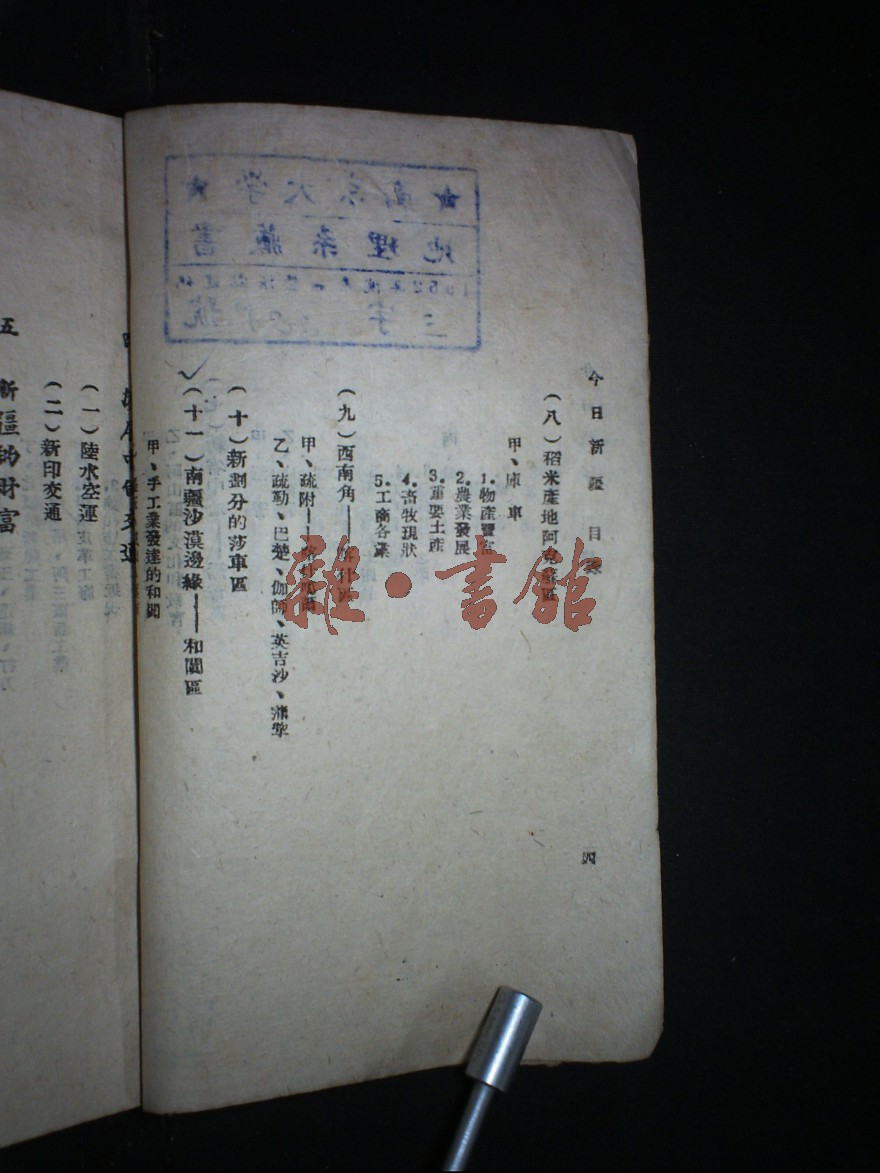 今日新疆 目錄
四
(八)稻米產地阿克蘇區
甲、庫車
1.物產豐富
2.農業發展
3.重要土產
4.畜牧現狀
5.工商各業
(九)西南角——喀什區
甲、疏附——喀什噶爾
乙、疏勒、巴楚、伽師、英吉沙、蒲犂
(十)新劃分的莎車區
(十一)南疆沙漠邊緣——和闐區
甲、手工業發達的和闐
(一)陸水空運
(二)新印交通
五 新疆的財富
雜·書館
南京大学
地理系藏書
三字 號